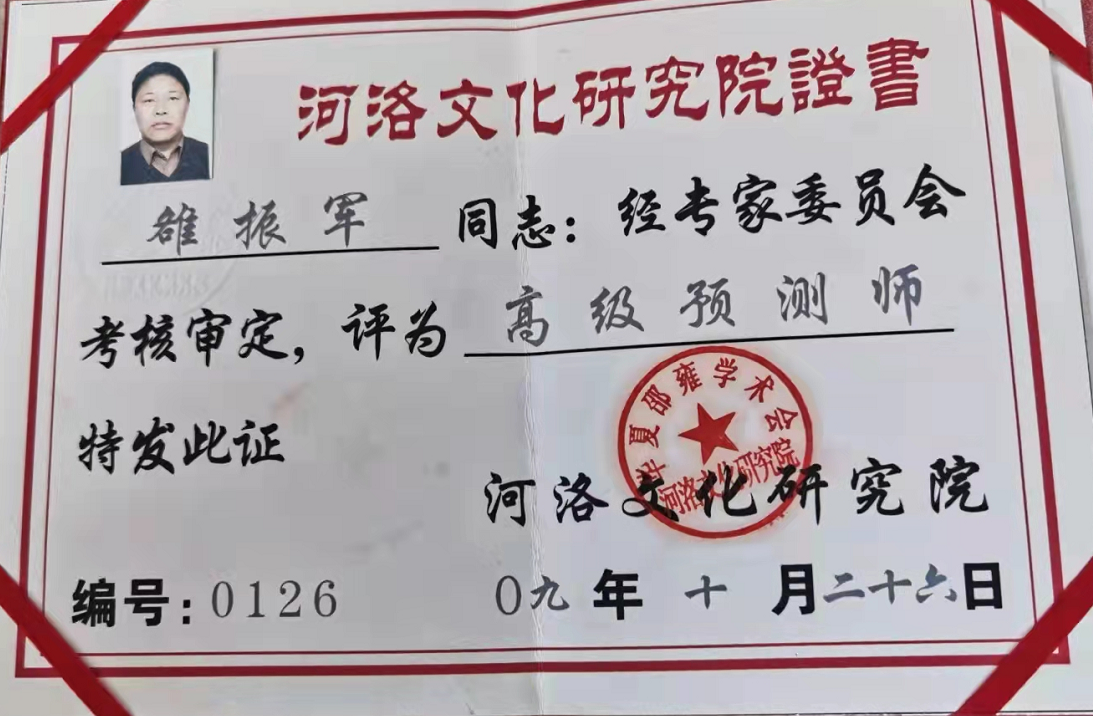 河洛文化研究院證書
雒振军同志：经专家委员会
考核审定，评为高级预测师
特发此证
华夏邵雍学术会
河洛文化研究院
河洛文化研究院
编号：0126 0九年十月二十六日